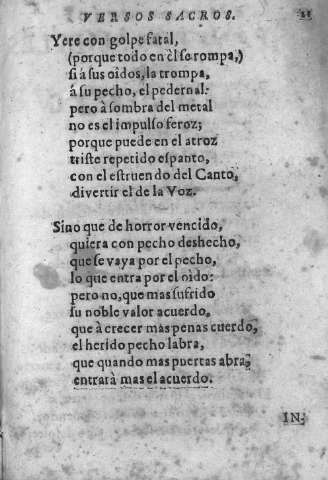 VERSOS SACROS.
Yere con golpe fatal,
(porque todo en èl se rompa,)
si á sus oìdos, la trompa,
á su pecho, el pedernal:
pero à sombra del metal
no es el impulso feroz;
porque puede en el atroz
triste repetido espanto,
con el estruendo del Canto,
divertir el de la Voz.
Sino que de horror vencido,
quiera con pecho deshecho,
que se vaya por el pecho,
lo que entra por el oìdo:
pero no, que mas sufrido
su noble valor acuerdo,
que à crecer mas penas cuerdo,
el herido pecho labra,
que quando mas puertas abra,
entrarà mas el acuerdo.
IN-